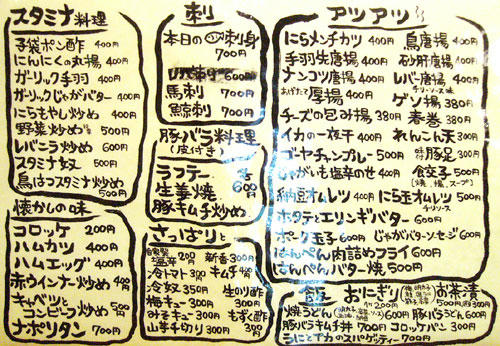 スタミナ料理
子袋ポン酢 400円
にんにくの丸揚 400円
ガーリック手羽 400円
ガーリックじゃがバター 400円
にらもやし炒め 400円
野菜炒め 500円
レバニラ炒め 600円
スタミナ奴 500円
鳥はつスタミナ炒め 500円
懐かしの味
コロッケ 200円
ハムカツ 400円
ハムエッグ 400円
赤ウインナー炒め 400円
キャベツとコンビーフ炒め 500円
ナポリタン 700円
刺
本日の刺身 700円
レバ刺 600円
馬刺 700円
鯨刺 700円
豚バラ料理
(皮付き)
ラフテー
生姜焼 各600円
豚キムチ炒め
さっぱりと
塩辛 200 新香 300円
冷トマト 300円 キムチ 400円
冷奴 350円 生のり酢 300円
梅キュー 300円
みそキュー 300円 もずく酢 300円
山芋千切り 300円
アツアツ
にらメンチカツ 400円 鳥唐揚 400円
手羽唐揚 400円 砂肝唐揚 400円
ナンコツ唐揚 400円 レバー唐揚 400円
チリソース味
あげたて 厚揚 400円 ゲソ揚 380円
チーズの包み揚 380円 春巻 380円
イカの一夜干 400円 れんこん天 300円
ゴーヤチャンプレー 500円 味付豚足 300円
じゃがいも塩辛のせ 400円 餃子 500円
(焼、揚、スープ)
納豆オムレツ 400円 にら玉オムレツ 500円
チリソース
ホタテとエリンギバター 600円
ポーク玉子 600円 じゃがバターソーセージ 600円
はんぺん肉詰めフライ 600円
はんぺんバター焼 500円
飯
おにぎり 200円
お茶漬 500円
焼うどん 600円 豚バラうどん 600円
豚バラキムチ丼 700円 コロッケパン 300円
うにとイカのスパゲッティー 700円